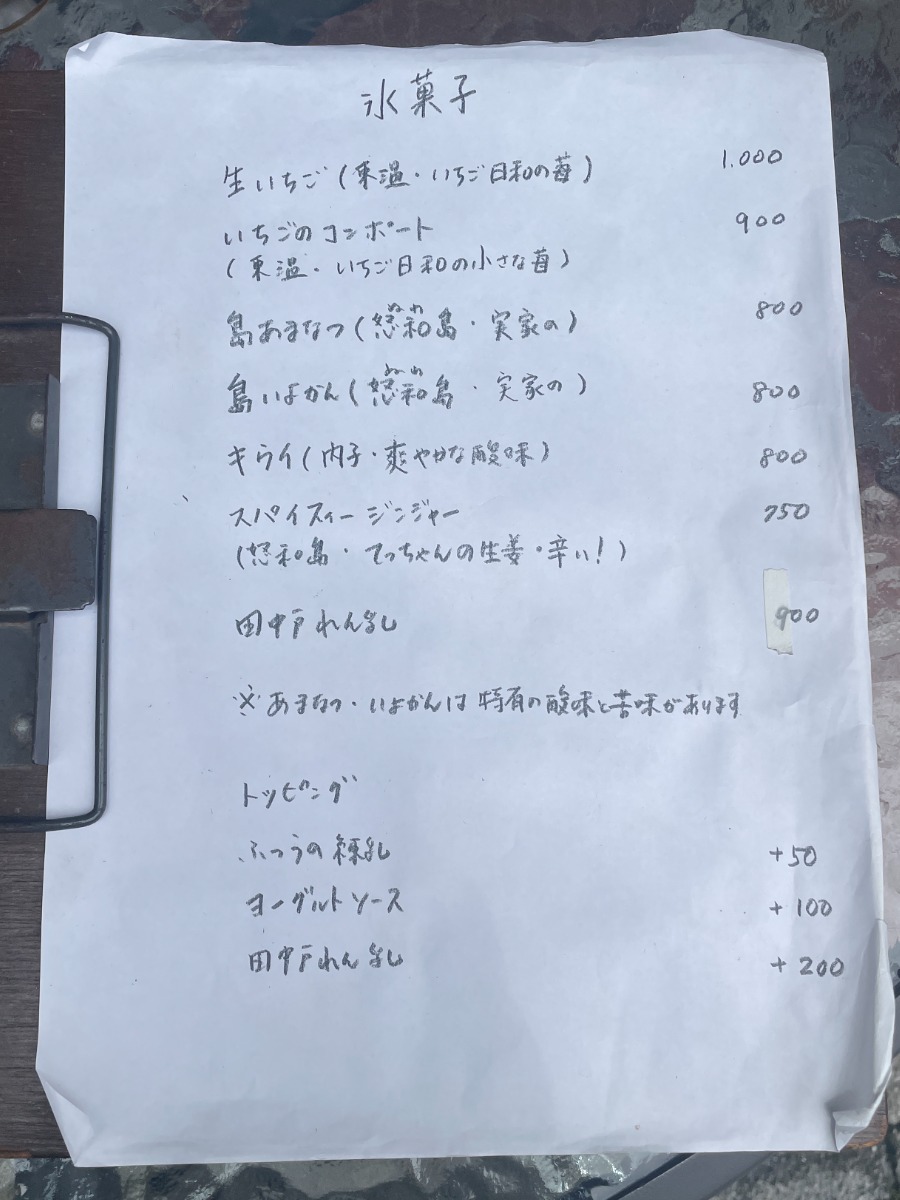 氷菓子
生いちご(東温・いちご日和の苺) 1.000
いちごのコンポート 900
(東温・いちご日和の小さな苺)
島あまなつ(怒和島・実家の) 800
島いよかん(怒和島・実家の) 800
キウイ(内子・爽やかな酸味) 800
スパイスィージンジャー 750
(怒和島・てっちゃんの生姜・辛い!)
田中戸れんにゅう 900
※あまなつ・いよかんは特有の酸味と苦味があります
トッピング
ふつうの練乳 +50
ヨーグルトソース +100
田中戸れん乳 +200